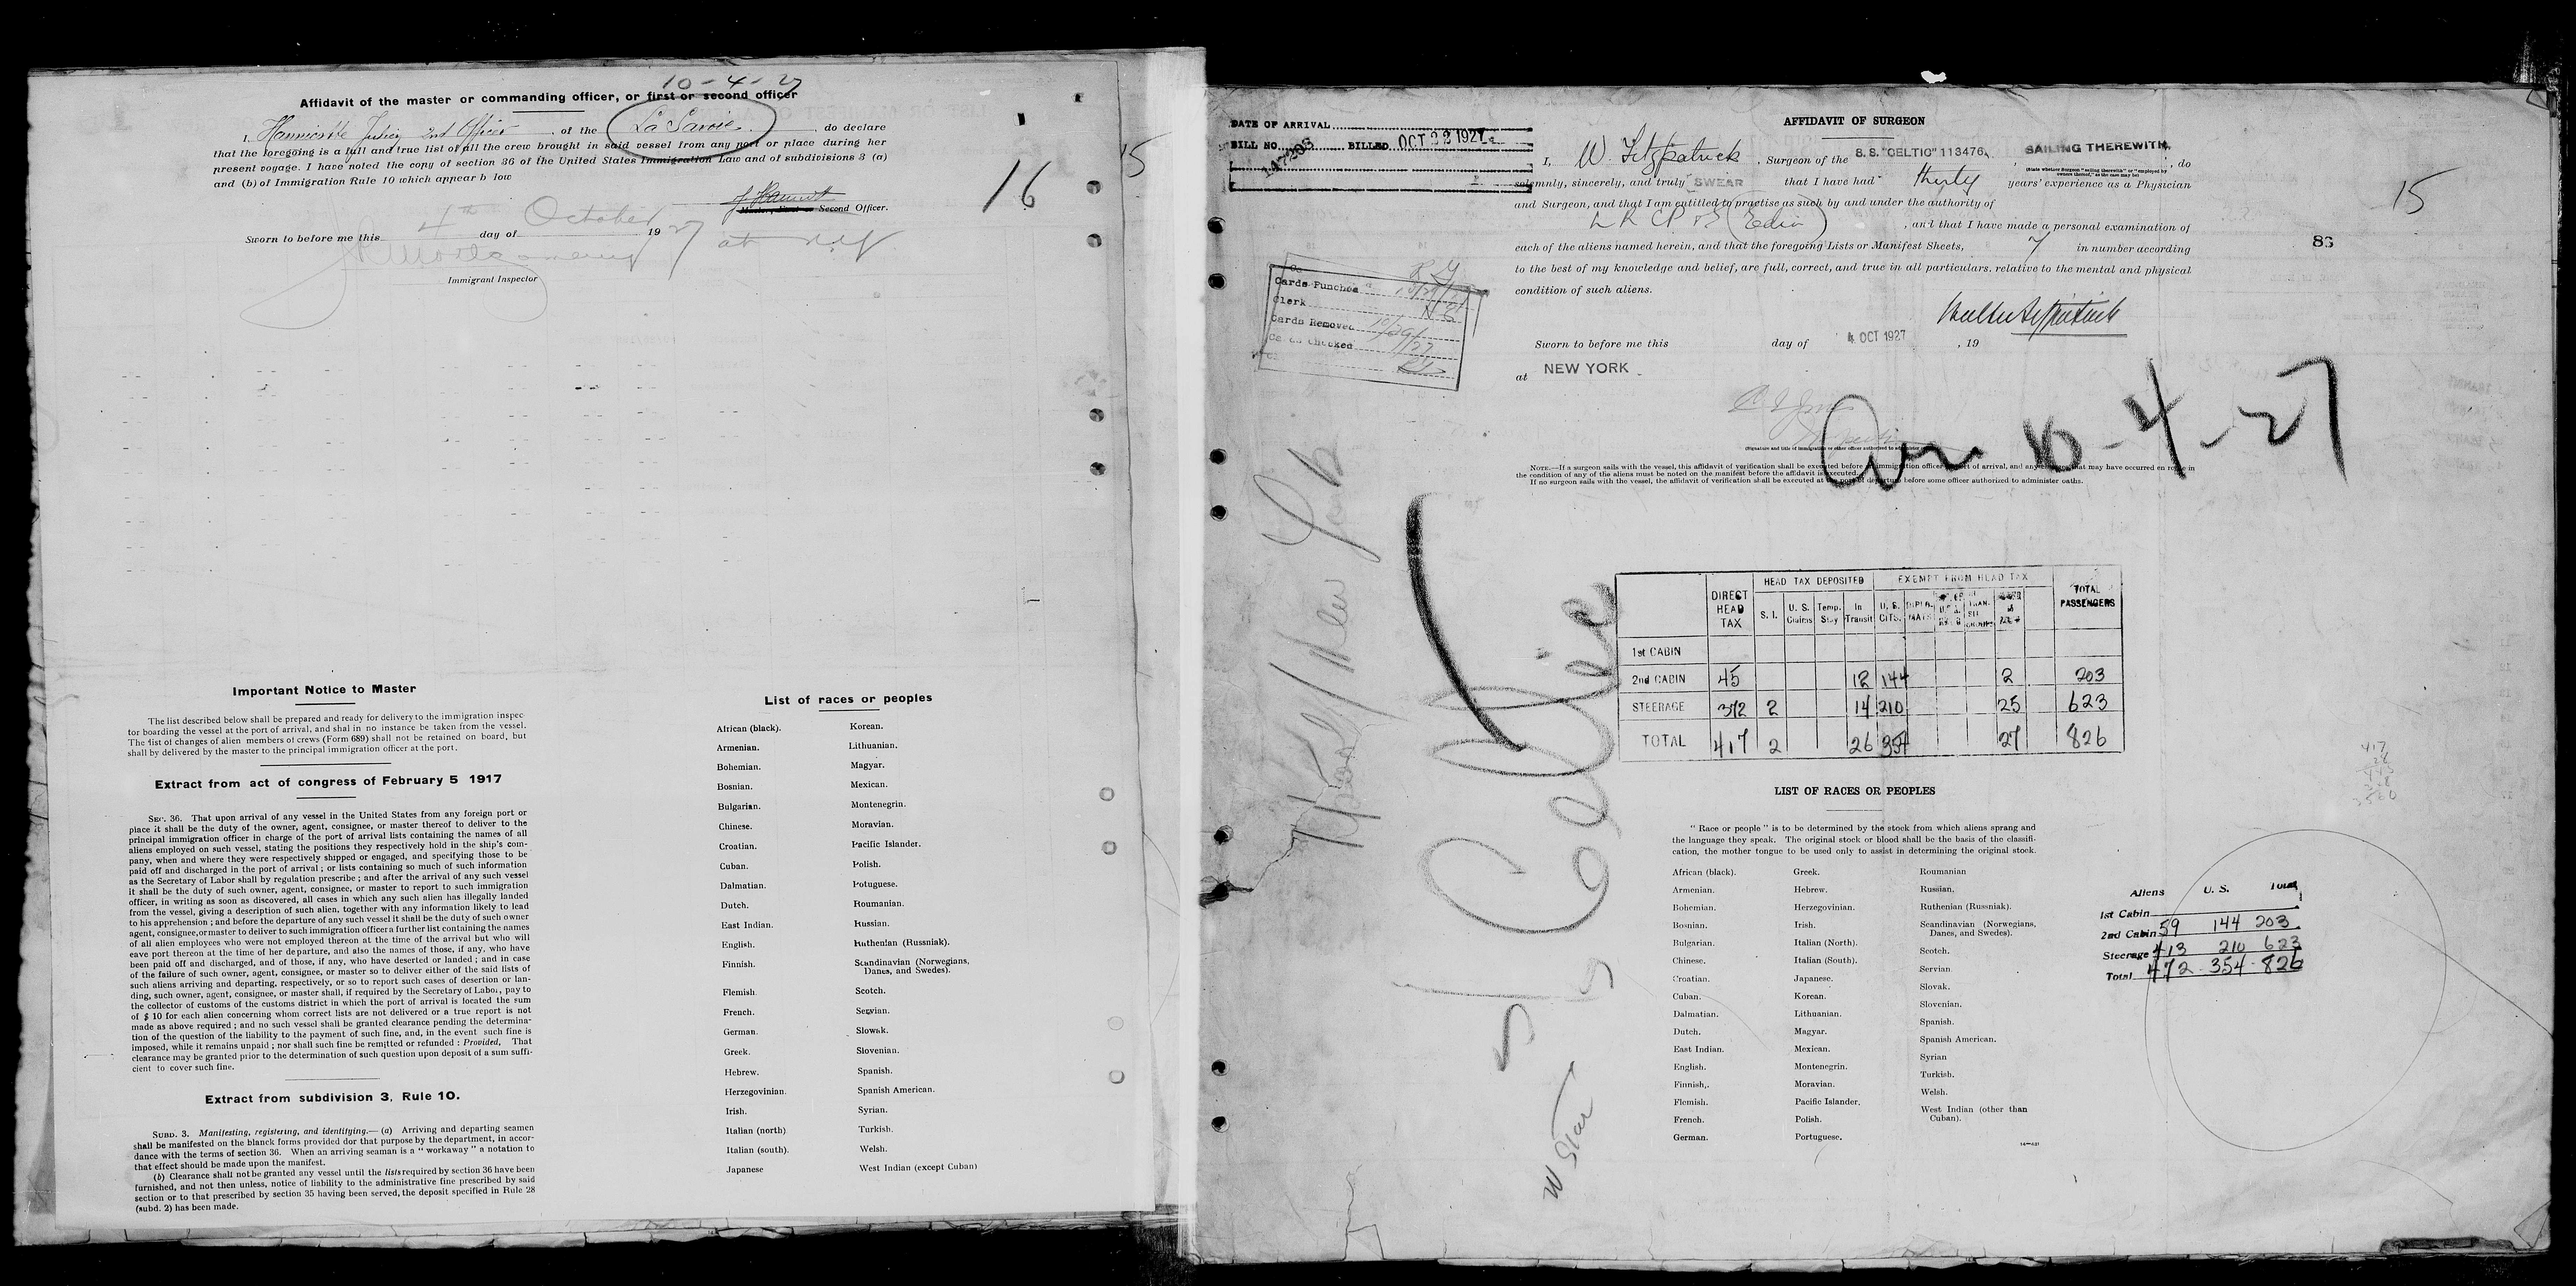 10-4-27
Affidavit of the master or commanding officer, or first or second officer
I, 2nd Officer of the La Savoie, do declare
that the foregoing is a full and true list of all the crew brought in said vessel from any port or place during her
present voyage. I have noted the copy of section 36 of the United States Immigration Law and of subdivisions 3 (a)
and (b) of Immigration Rule 10 which appear b low
16
Second Officer.
Sworn to before me this 4th day of October 1927 at
Immigrant Inspector
Important Notice to Master
The list described below shall be prepared and ready for delivery to the immigration inspec-
tor boarding the vessel at the port of arrival, and shal in no instance be taken from the vessel.
The list of changes of alien members of crews (Form 689) shall not be retained on board, but
shall by delivered by the master to the principal immigration officer at the port.
Extract from act of congress of February 5 1917
SEC. 36. That upon arrival of any vessel in the United States from any foreign port or
place it shall be the duty of the owner, agent, consignee, or master thereof to deliver to the
principal immigration officer in charge of the port of arrival lists containing the names of all
aliens employed on such vessel, stating the positions they respectively hold in the ship's com-
pany, when and where they were respectively shipped or engaged, and specifying those to be
paid off and discharged in the port of arrival; or lists containing so much of such information
as the Secretary of Labor shall by regulation prescribe; and after the arrival of any such vessel
it shall be the duty of such owner, agent, consignee, or master to report to such immigration
officer, in writing as soon as discovered, all cases in which any such alien has illegally landed
from the vessel, giving a description of such alien, together with any information likely to lead
to his apprehension; and before the departure of any such vessel it shall be the duty of such owner
agent, consignee, or master to deliver to such immigration officer a further list containing the names
of all alien employees who were not employed thereon at the time of the arrival but who will
eave port thereon at the time of her departure, and also the names of those, if any, who have
been paid off and discharged, and of those, if any, who have deserted or landed; and in case
of the failure of such owner, agent, consignee, or master so to deliver either of the said lists of
such aliens arriving and departing, respectively, or so to report such cases of desertion or lan-
ding, such owner, agent, consignee, or master shall, if required by the Secretary of Labor, pay to
the collector of customs of the customs district in which the port of arrival is located the sum
of $ 10 for each alien concerning whom correct lists are not delivered or a true report is not
made as above required; and no such vessel shall be granted clearance pending the determina-
tion of the question of the liability to the payment of such fine, and, in the event such fine is
imposed, while it remains unpaid; nor shall such fine be remitted or refunded: Provided, That
clearance may be granted prior to the determination of such question upon deposit of a sum suffi-
cient to cover such fine.
Extract from subdivision 3, Rule 10.
SUBD. 3. Manifesting, registering, and identifying.— (a) Arriving and departing seamen
shall be manifested on the blanck forms provided dor that purpose by the department, in accor-
dance with the terms of section 36. When an arriving seaman is a "workaway" a notation to
that effect should be made upon the manifest.
(b) Clearance shall not be granted any vessel until the lists required by section 36 have been
furnished, and not then unless, notice of liability to the administrative fine prescribed by said
section or to that prescribed by section 35 having been served, the deposit specified in Rule 28
(subd. 2) has been made.
List of races or peoples
African (black). Korean.
Armenian. Lithuanian.
Bohemian. Magyar.
Bosnian. Mexican.
Bulgarian. Montenegrin.
Chinese. Moravian.
Croatian. Pacific Islander.
Cuban. Polish.
Dalmatian. Potuguese.
Dutch. Roumanian.
East Indian. Russian.
English. Ruthenian (Russniak).
Finnish. Scandinavian (Norwegians,
Danes, and Swedes).
Flemish Scotch.
French. Servian.
German. Slowak.
Greek. Slovenian.
Hebrew. Spanish.
Herzegovinian. Spanish American.
Irish. Syrian.
Italian (north) Turkish.
Italian (south). Welsh.
Japanese West Indian (except Cuban)
15
DATE OF ARRIVAL
BILL NO. 147203 BILLED OCT 22 1927
AFFIDAVIT OF SURGEON
I, W. Fitzpatrick, Surgeon of the S. S. "CELTIC" 113476, SAILING THEREWITH, do
(State whether Surgeon "sailing therewith" or "employed by
owners thereof," as the case may be)
solemnly, sincerely, and truly SWEAR that I have had thirty years' experience as a Physician
and Surgeon, and that I am entitled to practise as such by and under the authority of
L R C P & S (Edin), and that I have made a personal examination of
each of the aliens named herein, and that the foregoing Lists or Manifest Sheets, 7 in number according
to the best of my knowledge and belief, are full, correct, and true in all particulars, relative to the mental and physical
condition of such aliens.
15
86
Cards Punched
Clerk
Cards Removed
Cards Checked
Walter Fitzpatrick
Sworn to before me this day of 4 OCT 1927, 19
at NEW YORK
(Signature and title of immigration or other officer authorized to
Arr 10-4-27
NOTE.—If a surgeon sails with the vessel, this affidavit of verification shall be executed before immigration officer of arrival, and any that may have occurred en route in
the condition of any of the aliens must be noted on the manifest before the affidavit is executed.
If no surgeon sails with the vessel, the affidavit of verification shall be executed at the port of departure before some officer authorized to administer oaths.
New York
SS Celtic
W Star
DIRECT HEAD TAX HEAD TAX DEPOSITED EXEMPT FROM HEAD TAX TOTAL PASSENGERS
S. I. U. S. Claims Temp. Stay In Transit U. S. CITS.
1st CABIN
2nd CABIN 45 12 144 2 203
STEERAGE 372 2 14 210 25 623
TOTAL 417 2 26 354 27 826
417
28
LIST OF RACES OR PEOPLES
"Race or people" is to be determined by the stock from which aliens sprang and
the language they speak. The original stock or blood shall be the basis of the classifi-
cation, the mother tongue to be used only to assist in determining the original stock.
African (black). Greek. Roumanian
Armenian. Hebrew. Russian.
Bohemian. Herzegovinian. Ruthenian (Russniak).
Bosnian. Irish. Scandinavian (Norwegians,
Danes, and Swedes).
Bulgarian. Italian (North). Scotch.
Chinese. Italian (South). Servian
Croatian. Japanese. Slovak.
Cuban. Korean. Slovenian.
Dalmatian. Lithuanian. Spanish.
Dutch. Magyar. Spanish American.
East Indian. Mexican. Syrian
English. Montenegrin. Turkish.
Finnish. Moravian. Welsh.
Flemish. Pacific Islander. West Indian (other than
Cuban).
French. Polish.
German. Portuguese.
Aliens U. S. Total
1st Cabin
2nd Cabin 59 144 203
Steerage 413 210 623
Total 472 354 826